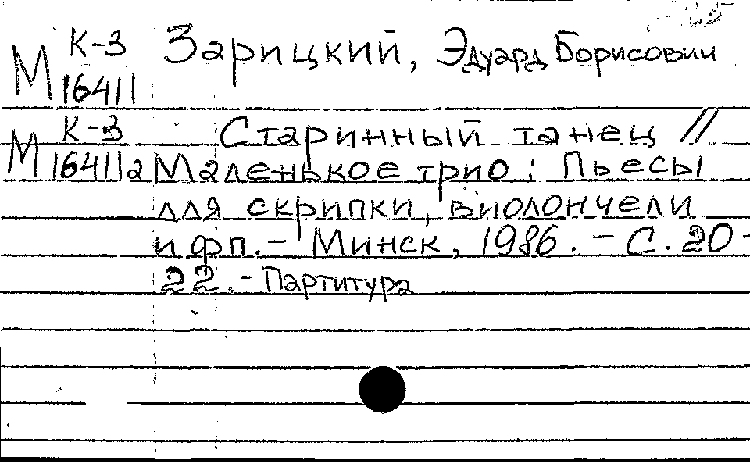 К-3 Зарицкий, Эдуард Борисович
М 16411
К-3 Старинный танец //
М 16411а Маленькое трио: Пьесы
для скрипки, виолончели
и фп. – Минск, 1986. – С. 20-
22. – Партитура